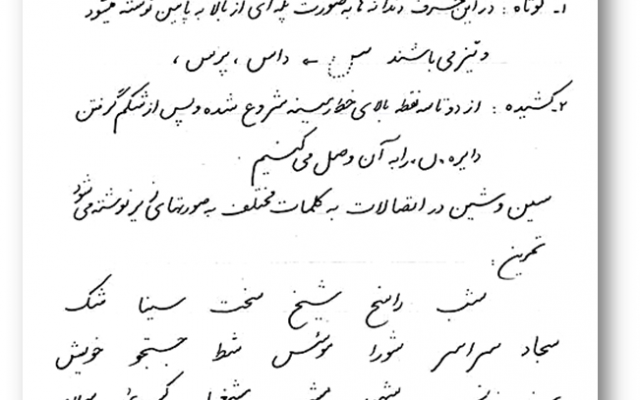 ۱- کوتاه : در این حرف دندانه ها به صورت پله ای از بالا به پائین نوشته میشود
و تیز می باشند س ← داس ، پرس ،
۲- کشیده : از دو تا سه نقطه بالای خط زمینه شروع شده و پس از شکم گرفتن
دایره «ن» را به آن وصل می کنیم .
سین و شین در اتصالات به کلمات مختلف به صورتهای زیر نوشته می شود
تمرین :
شب راسخ شیخ سخت سینا شک
سجاد سراسر شورا مونس شط جستجو خویش